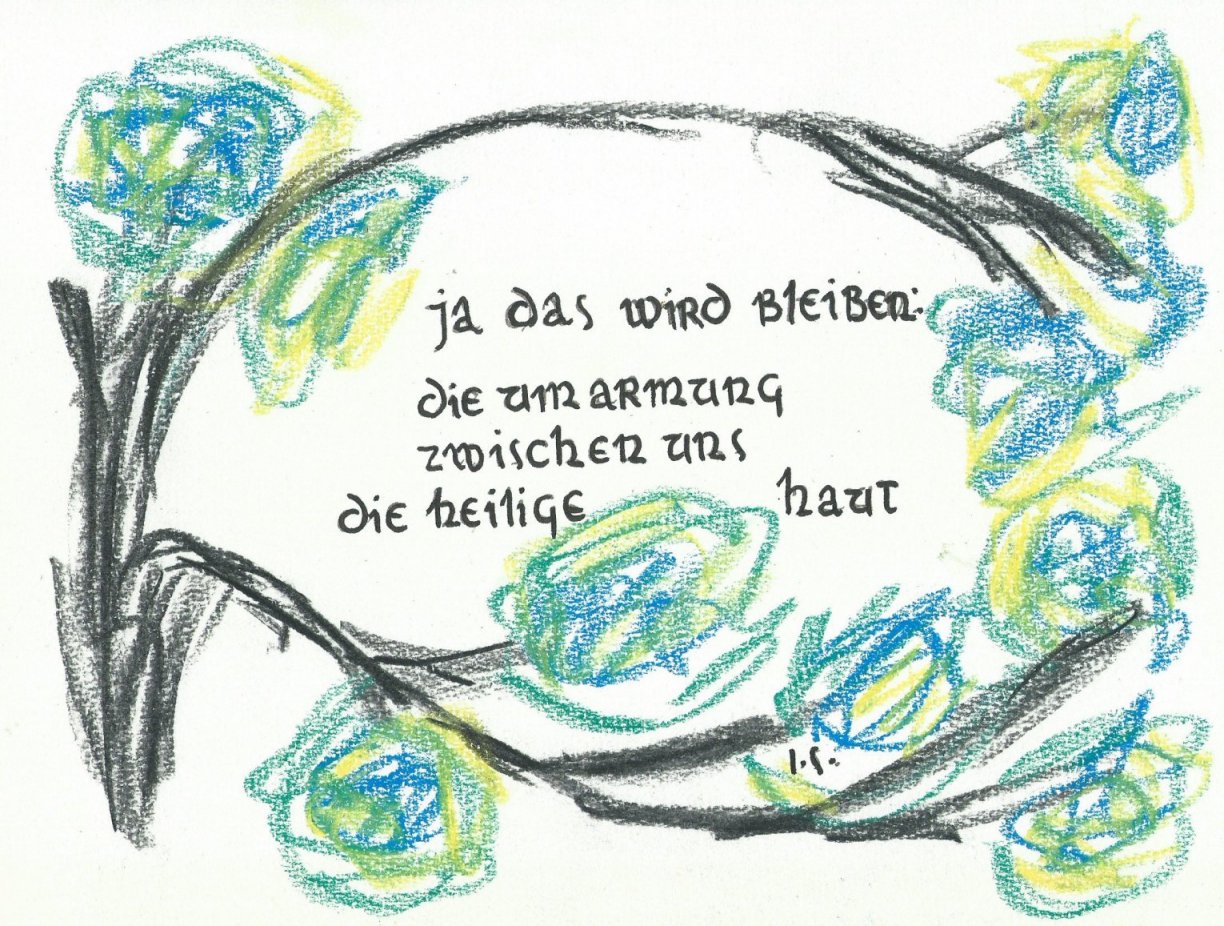 ja das wird bleiben:
die umarmung
zwischen uns
die heilige haut
I.S.